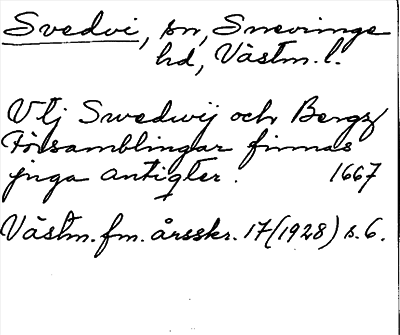 Svedvi, sn, Snevringe
hd, Västm. l.
Utj Swedwij och Bergz
Församblingar finnas
jnga antiqter. 1667
Västm. fm. årsskr. 17 (1928) s. 6.